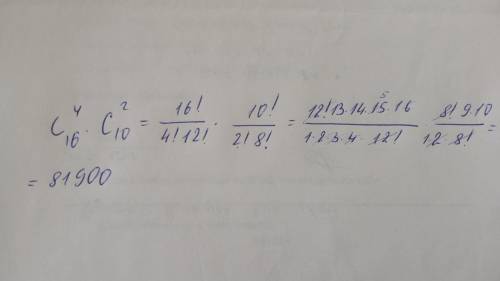 C₁₆⁴ · C₁₀² = 16! / 4! 12! · 10! / 2! 8! = 12! 13·14·15·16 / 1·2·3·4·12! 5 8! 9·10 / 1·2·8! =
= 81900